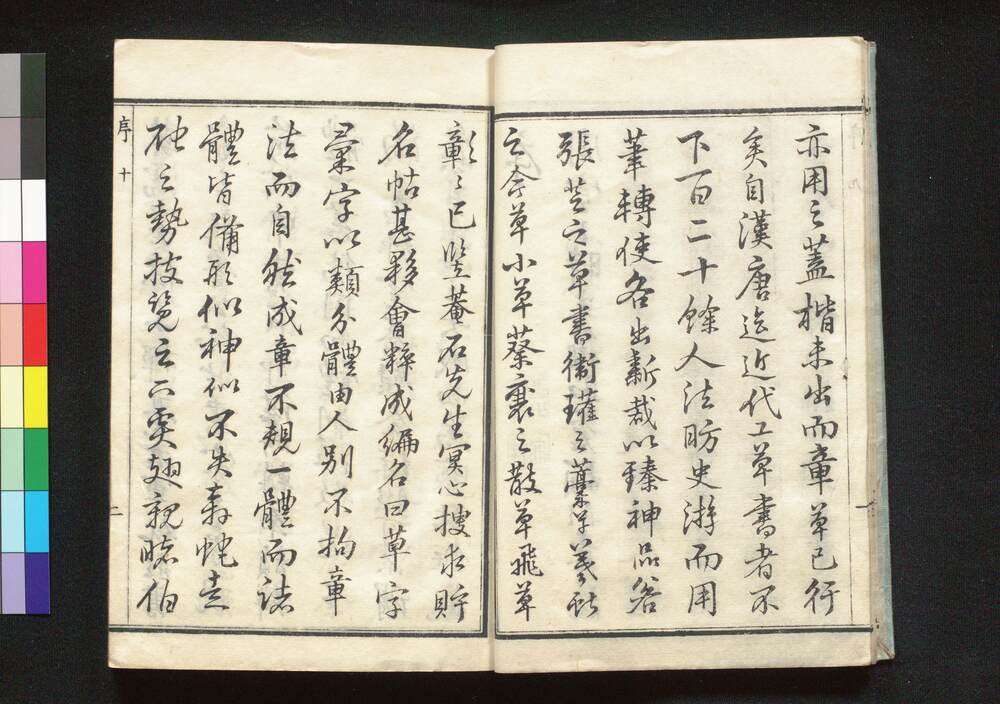 亦用之蓋楷未出而章草已行
矣自漢唐迄近代工草書者不
下百二十餘人法昉史游而用
筆轉使各出新裁以臻神品若
張芝之草書衛瓘之藁草羲獻
之今草小草蔡襄之散草飛草
彰彰已豎菴石先生冥心搜求貯
名帖甚夥會粹成編名曰草字
彙字以類分體由人別不拘章
法而自然成章不規一體而諸
體皆備形似神似不失
之勢披覽之下奚翅親睹伯
序 十
二